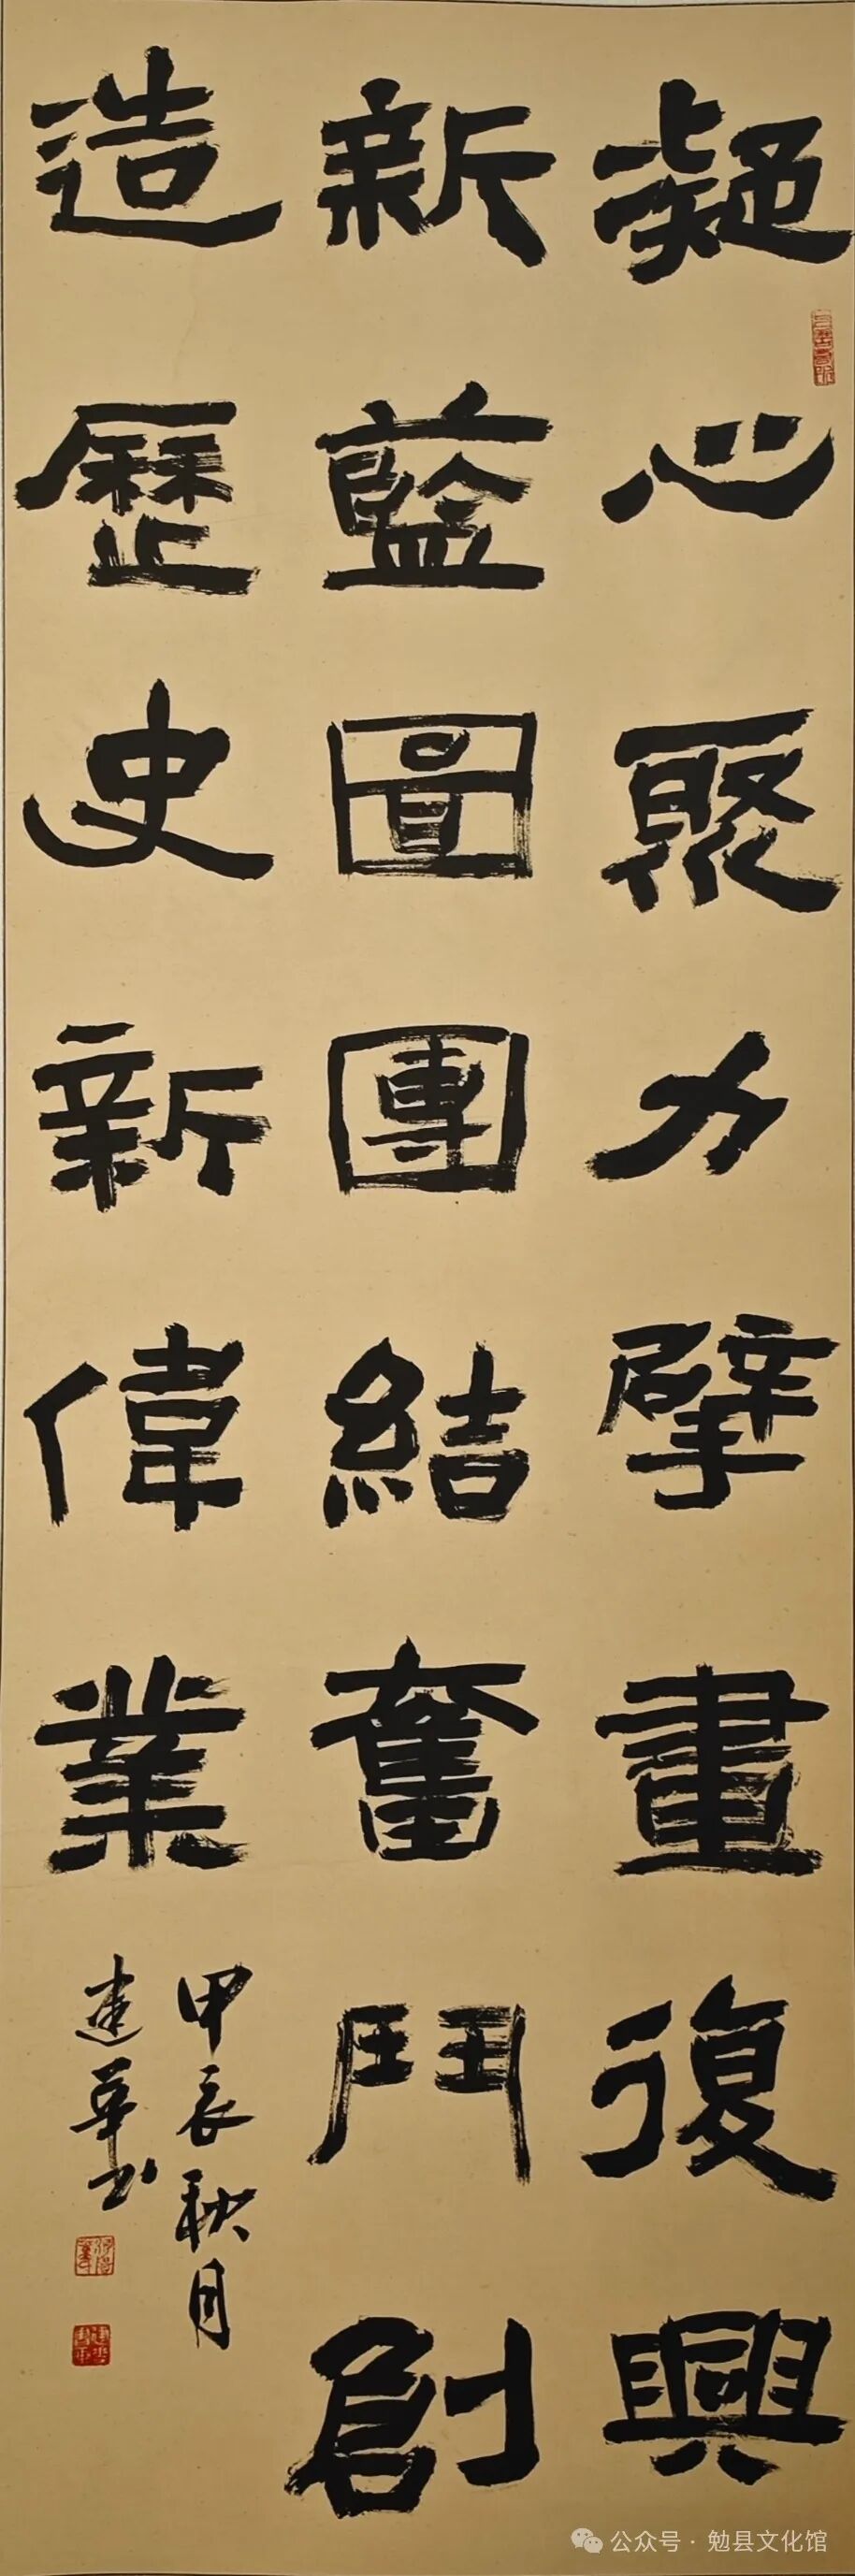 凝心聚力擘畫復興
新藍圖團結奮鬥創
造歷史新偉業
甲辰秋月
建華书
公众号 · 勉县文化馆